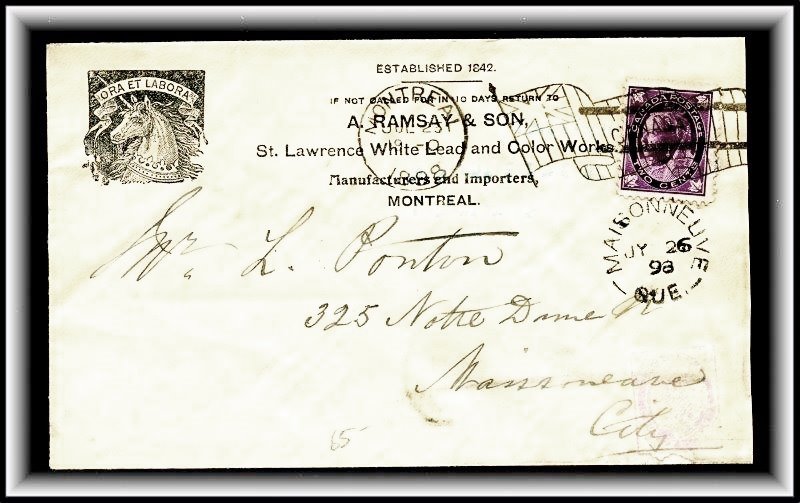 ORA ET LABORA
ESTABLISHED 1842.
IF NOT CALLED FOR IN 10 DAYS RETURN TO
A. RAMSAY & SON,
St. Lawrence White Lead and Color Works.
Manufacturers and Importers,
MONTREAL.
MONTREAL
JUL 25
1898
CANADA POSTAGE
TWO CENTS
MAISONNEUVE
JY 26
98
QUE.
Mr. L. Ponton
325 Notre Dame
Maisoneuve
City